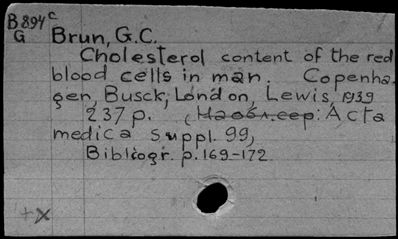 B 894 c
G Brun, G.C.
Cholesterol content of the red
blood cells in man. Copenha-
gen, Busck, London, Lewis, 1939
237 p. (На обл. сер: Acta
medica suppl. 99,
Bibliogr. p. 169-172
+x